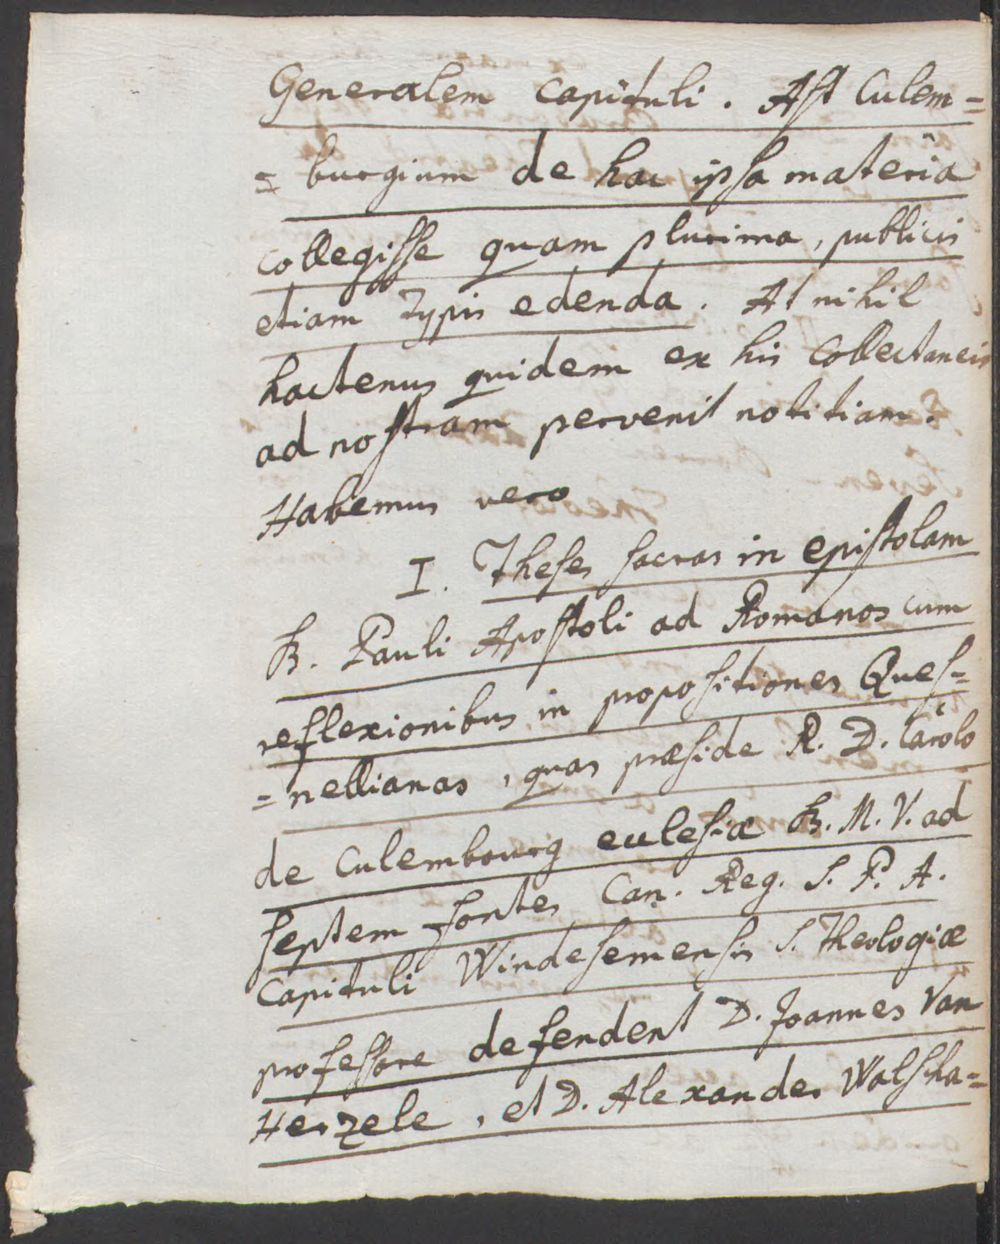 Generalem capituli. Ast Culem=
= burgium de hac ipsa materia
collegisse quam plurima, publicis
etiam typis edenda. At nihil
hactenus quidem ex his collectaneis
ad nostram pervenit notitiam.
Habemus vero
I. Theses sacras in epistolam
B. Pauli Apostoli ad Romanos cum
reflexionibus in propositiones Ques=
= nellianas, quas præside R. D. Carolo
de Culembourg ecclesiæ B. M. V. ad
septem fontes Can. Reg. S. P. A.
Capituli Windesemensis S. Theologiæ
professore defendent D. Joannes Van
Herzele, et D. Alexander Walscha=